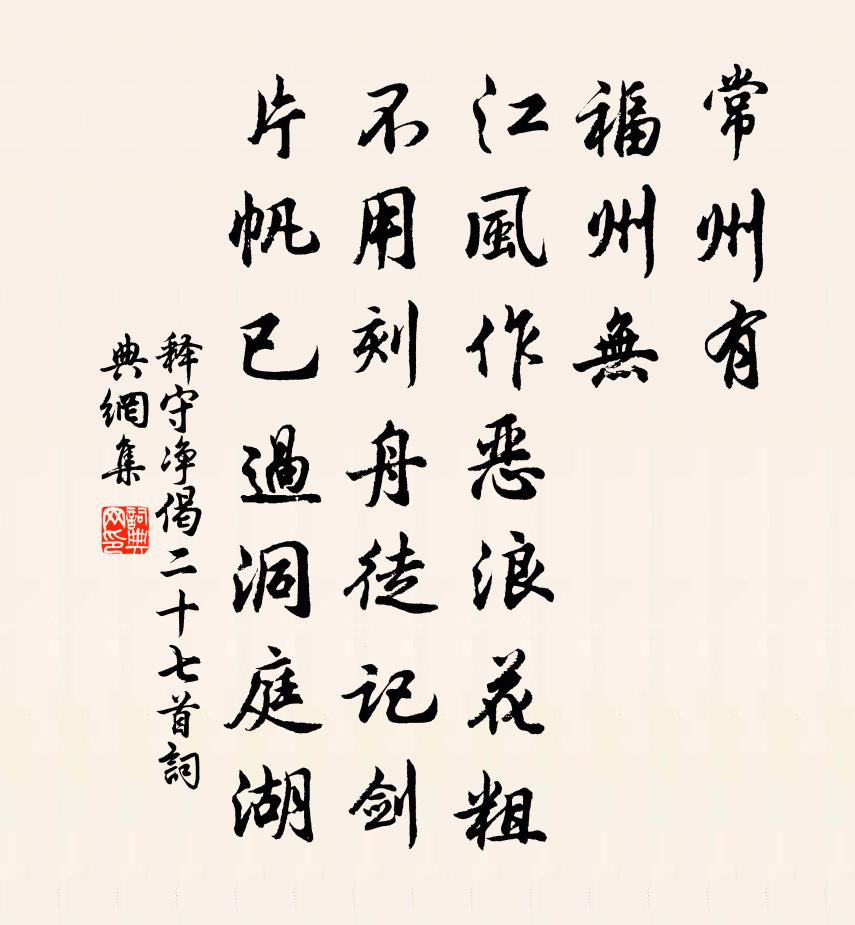 常州有
福州無
江風作恶浪花粗
不用刻舟徒记剑
片帆已過洞庭湖
释守净偈二十七首詞
典網集
詞典
网印